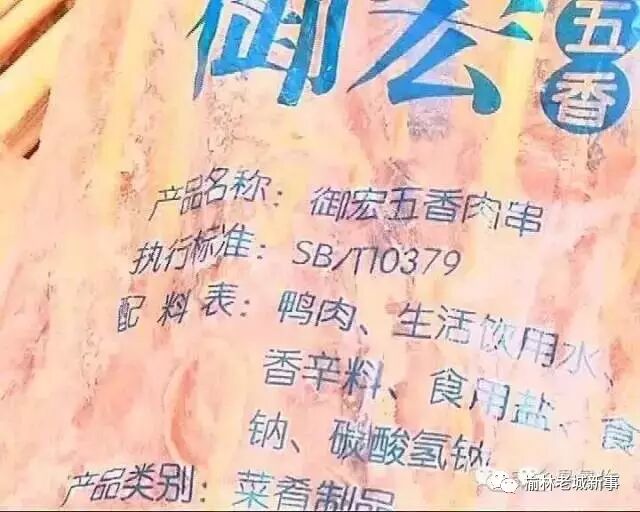 御宏五香
产品名称：御宏五香肉串
执行标准：SB/T10379
配料表：鸭肉、生活饮用水、
香辛料、食用盐、食
钠、碳酸氢钠
产品类别：菜肴制品
榆林老城新事